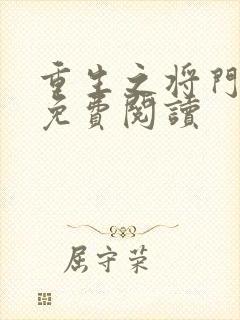 重生之将門
免費閱讀
屈守荣